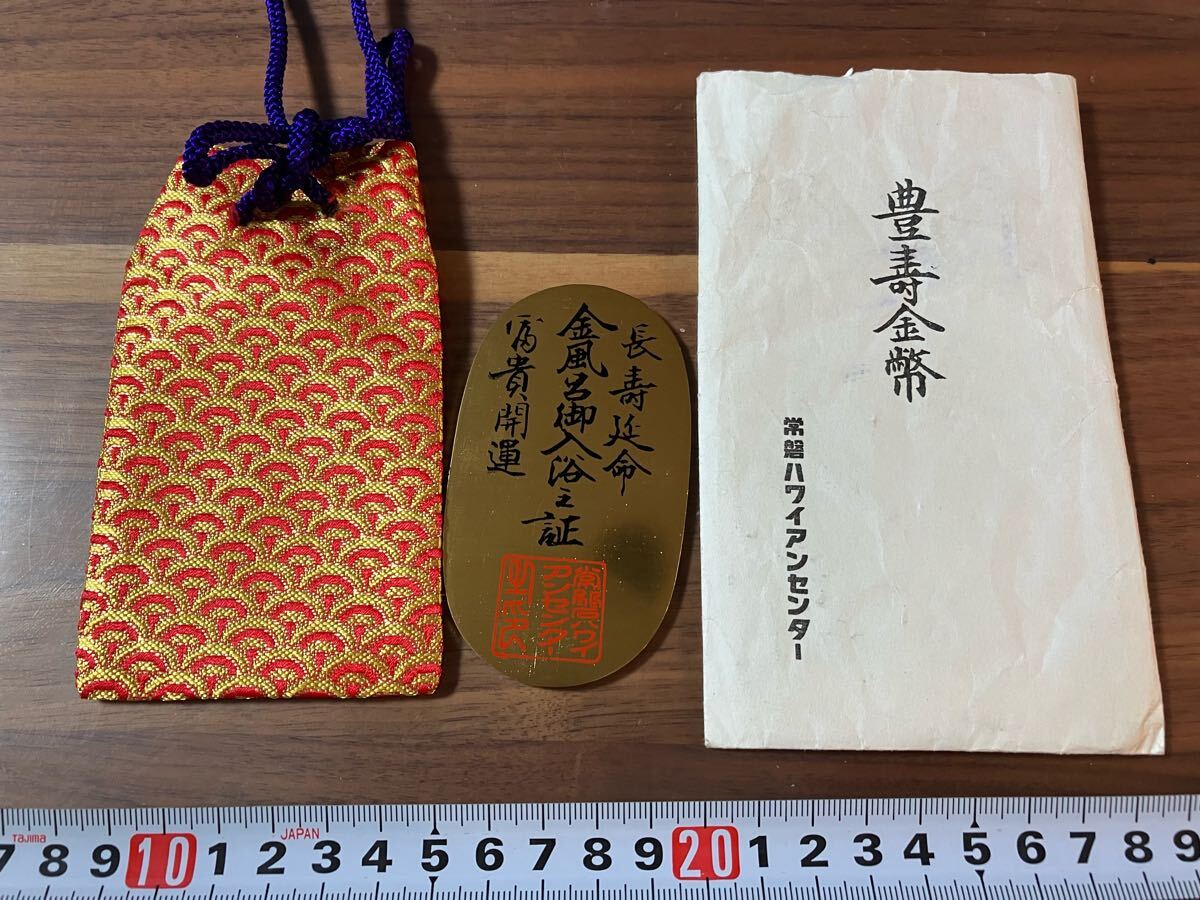 長壽延命
金風呂御入浴之証
富貴開運
常磐ハワイ
アンセンター
之印
豊壽金幣
常磐ハワイアンセンター
Tajima
JAPAN
7 8 9 10 1 2 3 4 5 6 7 8 9 20 1 2 3 4 5 6 7 8 9